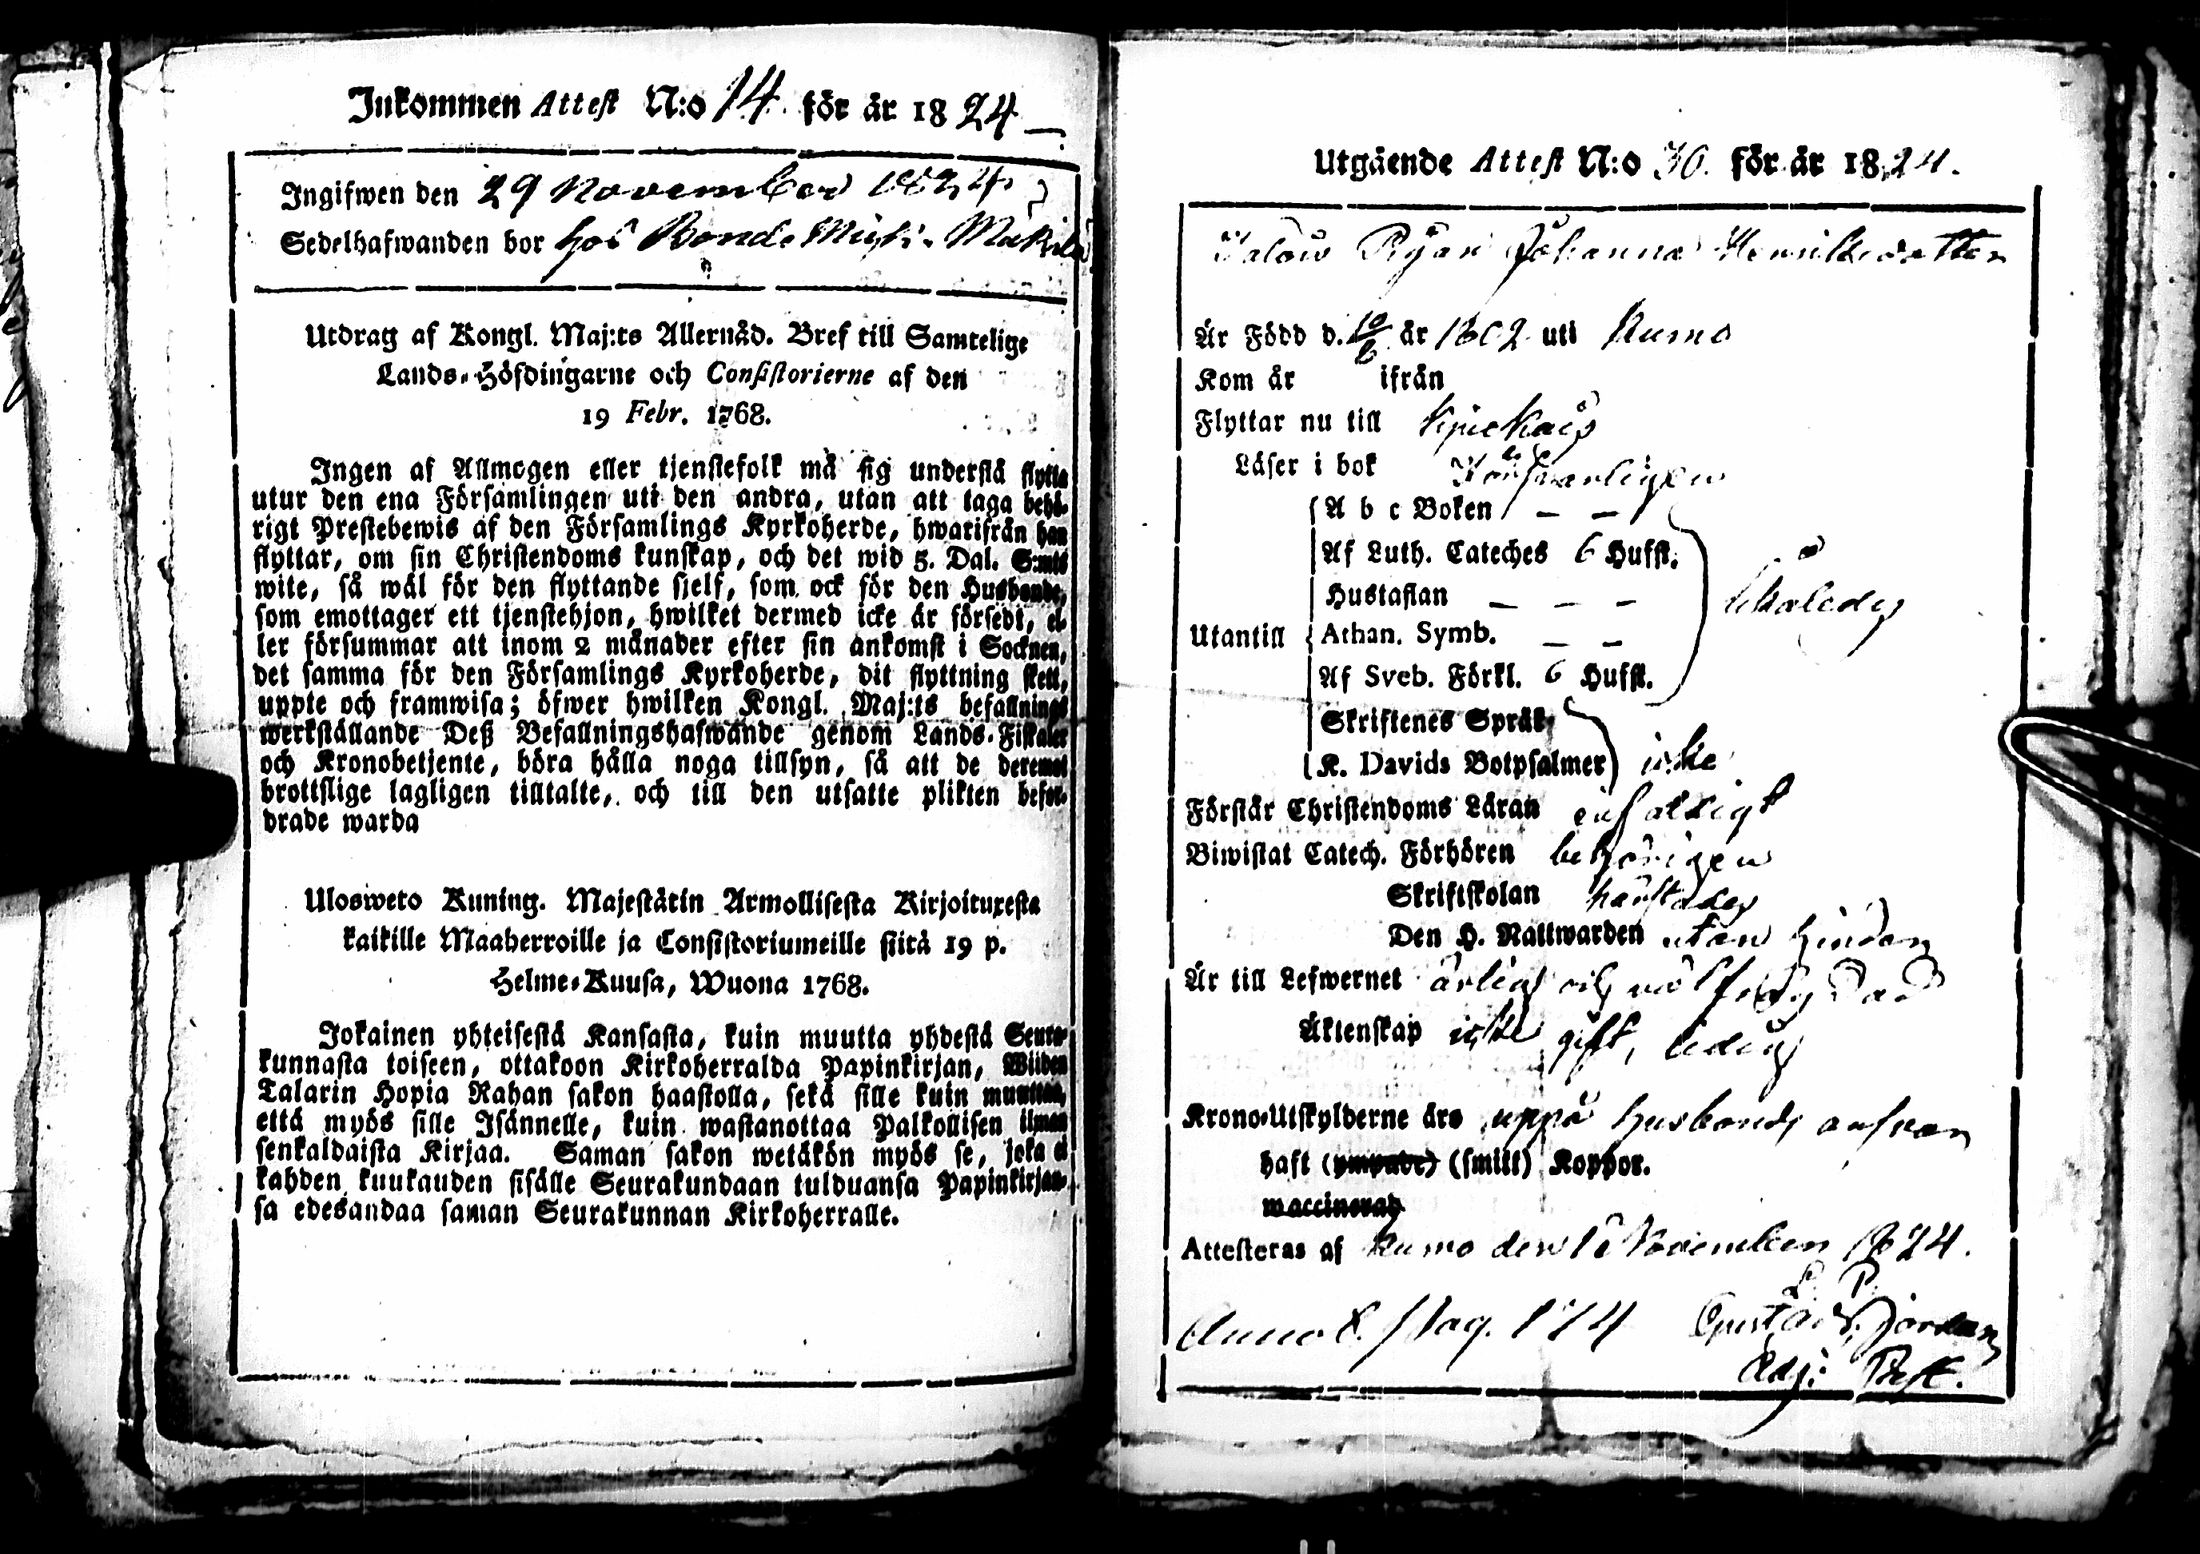 Inkommen Attest N:o 14. för år 1824
Ingifwen den 29 November 1824
Sedelhafwanden bor hos Bonde Mäkilä
Utdrag af Kongl. Maj:ts Allernåd. Bref till Samtelige
Lands-Höfdingarne och Consistorierne af den
19 Febr. 1768.
Ingen af Allmogen eller tjenstefolk må sig understå flytta
utur den ena Församlingen uti den andra, utan att taga behö-
rigt Prestebewis af den Församlings Kyrkoherde, hwarifrån han
flyttar, om sin Christendoms kunskap, och det wid 5. Dal. S:mts
wite, så wäl för den flyttande sielf, som ock för den Husbonde,
som emottager ett tjenstehjon, hwilket dermed icke är försedt, el-
ler försummar att inom 2 månader efter sin ankomst i Socknen,
det samma för den Församlings Kyrkoherde, dit flyttning skett,
uppte och framwisa; öfwer hwilken Kongl. Maj:ts befallnings
werkställande Deß Befallningshafwande genom Lands-Fiskaler
och Kronobetjente, böra hålla noga tillsyn, så att de deremot
brottslige lagligen tilltalte, och till den utsatte plikten befor-
drade warda
Ulosweto Kuning. Majestätin Armollisesta Kirjoituxesta
kaikille Maaherroille ja Consistoriumeille siitä 19 p.
Helme-Kuusa, Wuona 1768.
Jokainen yhteisestä Kansasta, kuin muutta yhdestä Seura-
kunnasta toiseen, ottakoon Kirkoherralda Papinkirjan, Wiiden
Talarin Hopia Rahan sakon haastolla, sekä sille kuin muuttaa,
että myös sille Isännelle, kuin wastanottaa Palkollisen ilman
senkaldaista Kirjaa. Saman sakon wetäkön myös se, joka ei
kahden kuukauden sisälle Seurakundaan tulduansa Papinkirjan-
sa edesandaa saman Seurakunnan Kirkoherralle.
Utgående Attest N:o 30. för år 1824.
Pigan Johanna Henriksdotter
Är Född d. 10/6 år 1802 uti Kumo
Kom år ifrån
Flyttar nu till Kjuckais
Läser i bok försvarligen
A b c Boken — —
Af Luth. Cateches 6 Hufst.
Hustaflan — — —
Utantill Athan. Symb. — —
Af Sveb. Förkl. 6 Hufst.
således
Skriftenes Språk
K. Davids Botpsalmer icke
Förstår Christendoms Läran enfaldigt
Biwistat Catech. Förhören behörigen
Skriftskolan
Den H. Nattwarden utan hinder
Är till Lefwernet ärlig och wäl frägdad
Äktenskap icke gift, ledig
Krono-Utskylderne äro uppå husbonds answar
haft (ympade) (smitt) Koppor.
waccinerad
Attesteras af Kumo den 18 November 1824.
L. P.
Anno S. pag. 174 Gustaf
Adj: Past.